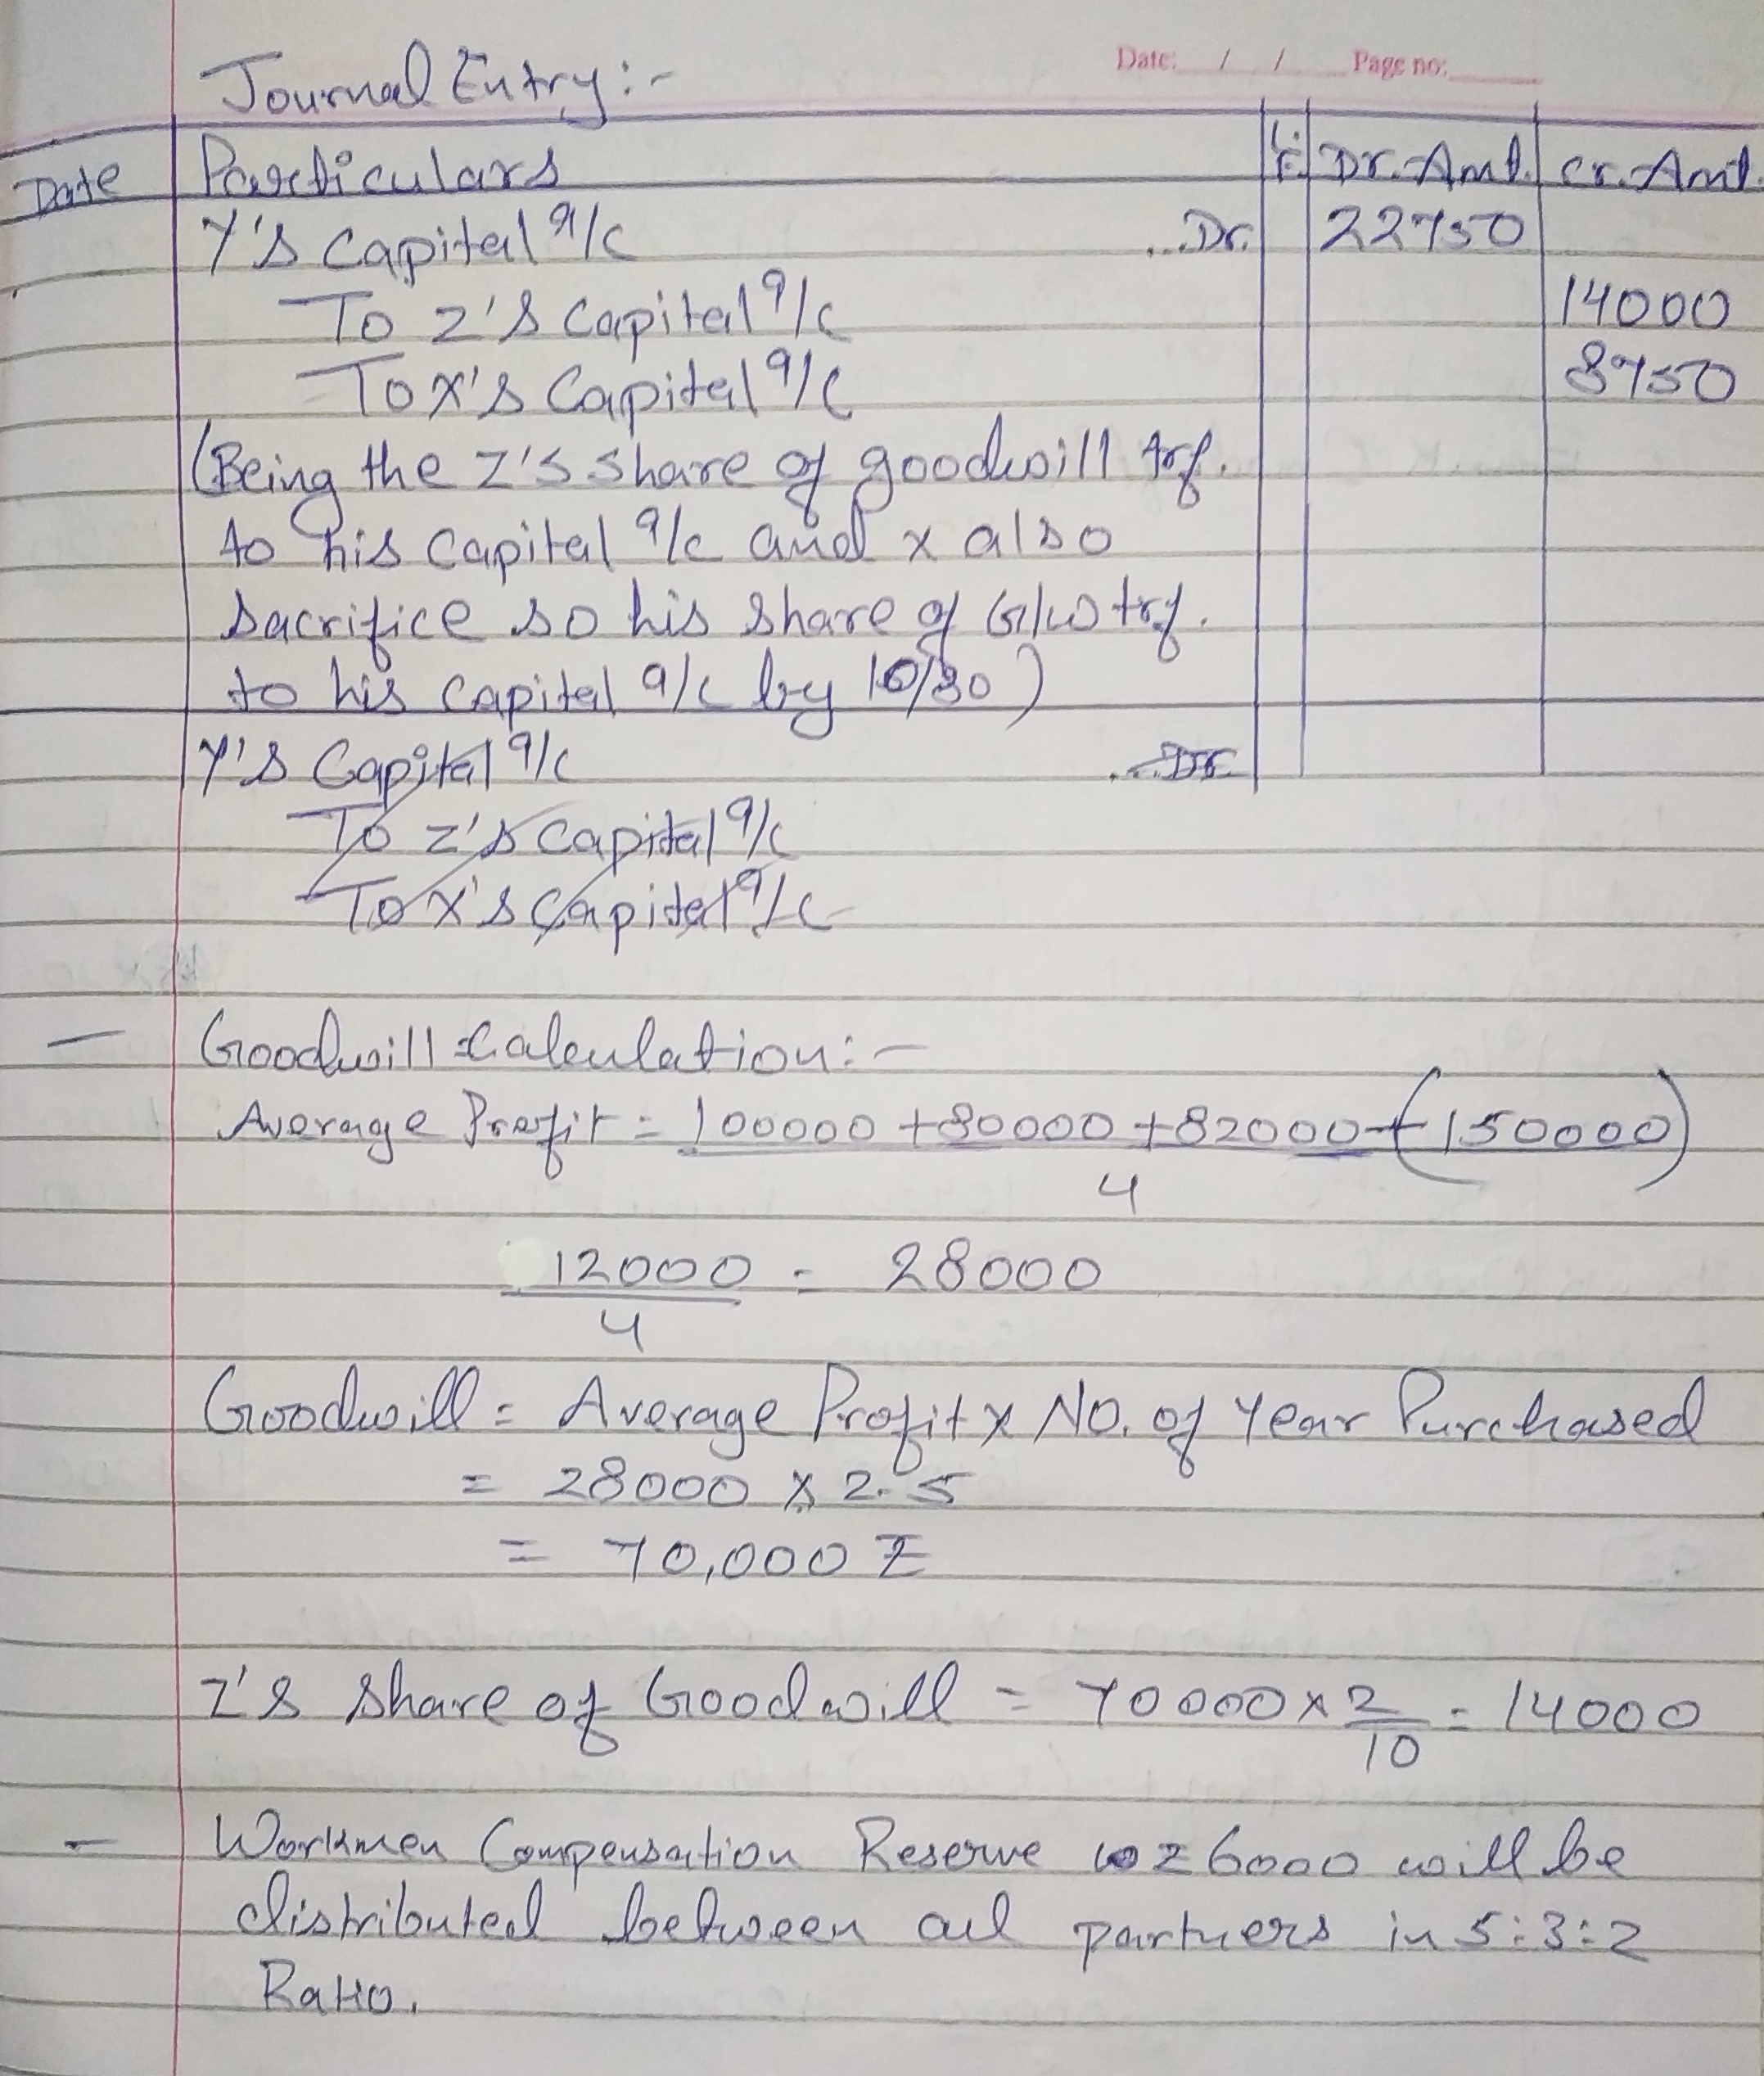 Date: / / Page no:
Journal Entry:-
Date Particulars L.F. Dr. Amt. Cr. Amt.
Y's Capital a/c ...Dr. 22750
To Z's Capital a/c 14000
To X's Capital a/c 8750
(Being the Z's share of goodwill trf.
to his Capital a/c and x also
sacrifice so his share of G/w trf.
to his Capital a/c by 10/80)
Y's Capital a/c ...Dr.
To Z's Capital a/c
To X's Capital a/c
- Goodwill Calculation:-
Average Profit = 100000 + 80000 + 82000 + (150000)
4
12000 = 28000
4
Goodwill = Average Profit x No. of Year Purchased
= 28000 x 2.5
= 70,000 Z
Z's Share of Goodwill = 70000 x 2 = 14000
10
- Workmen Compensation Reserve 6000 will be
distributed between all partners in 5:3:2
Ratio.